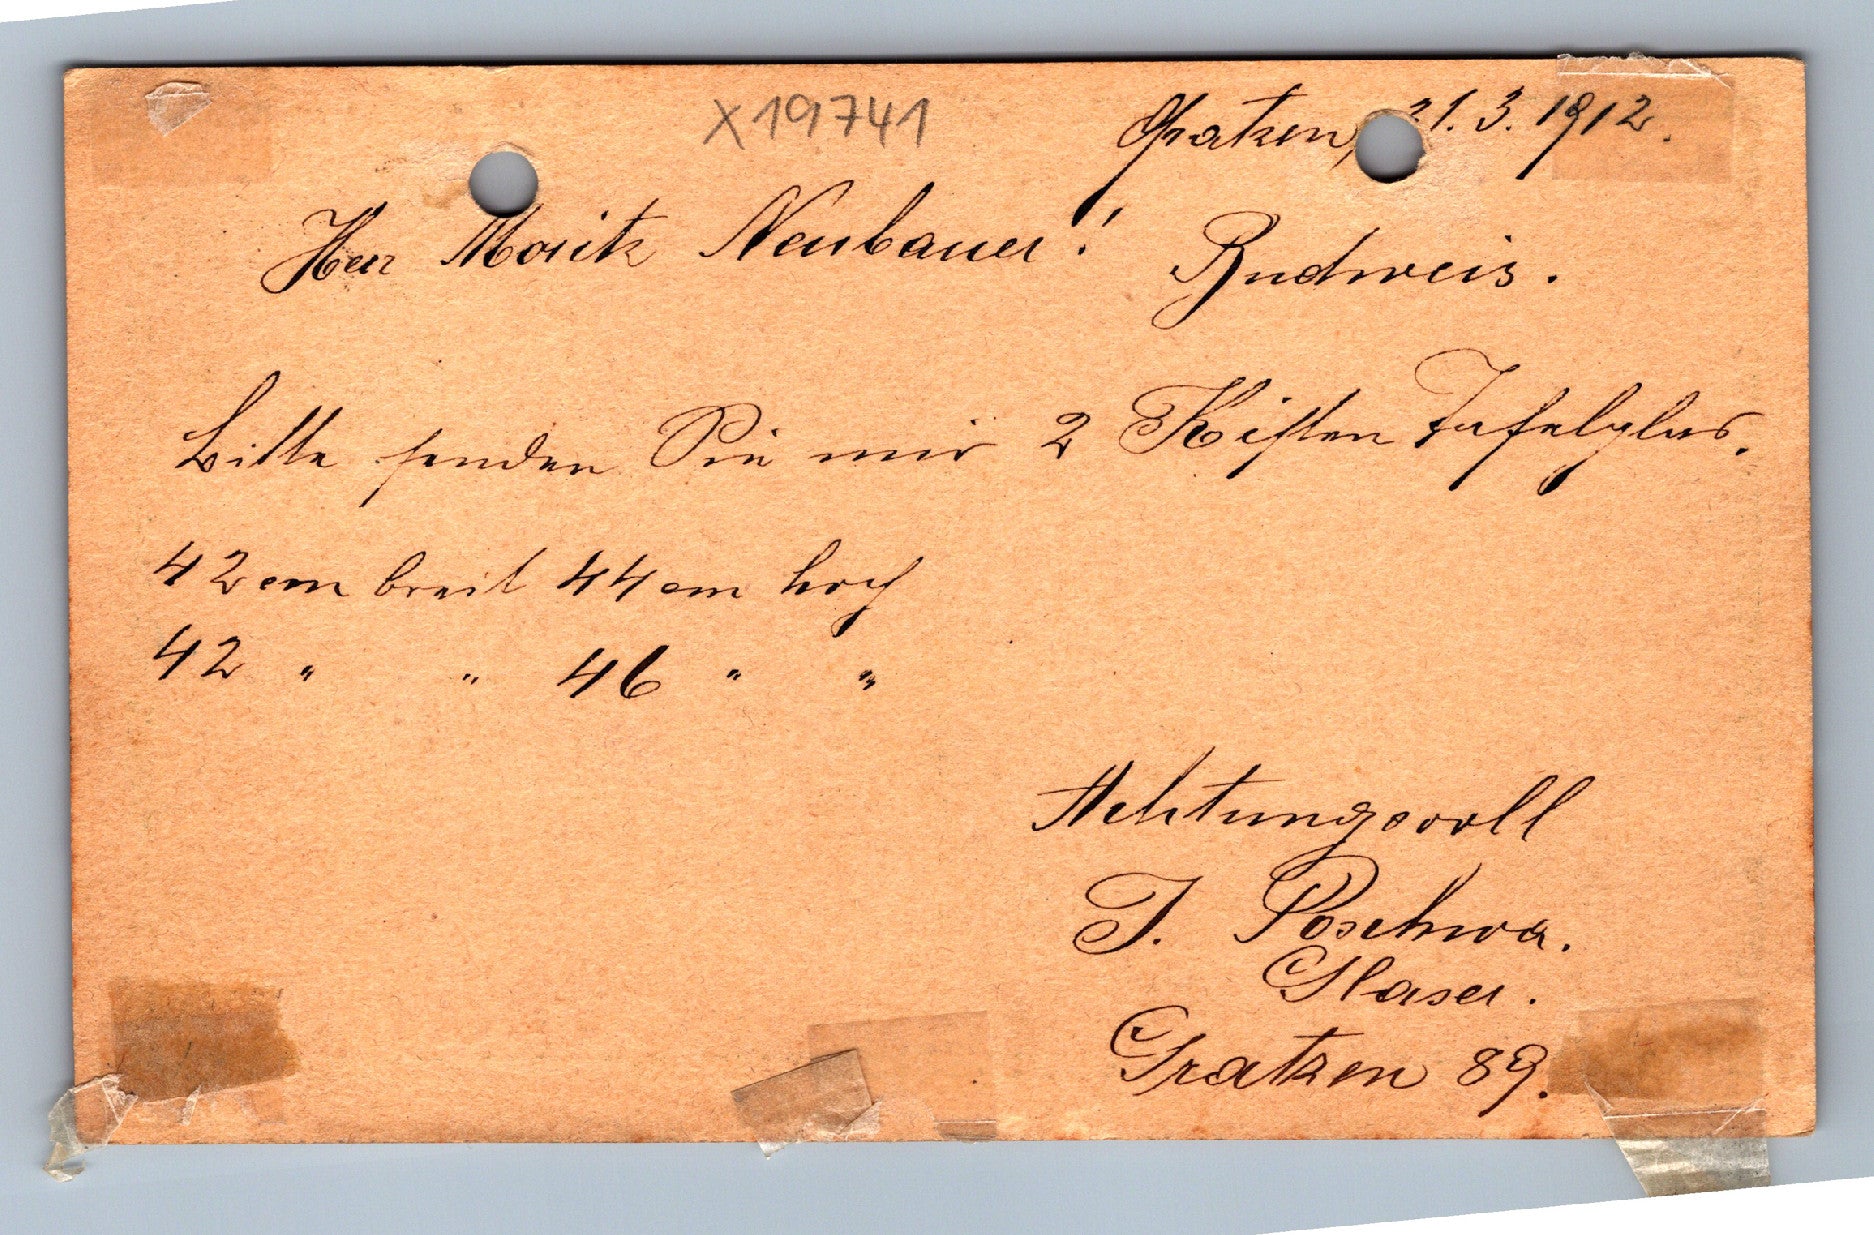 X19741
Gratzen, 21.3.1912.
Herr Moritz Neubauer! Budweis.
Bitte senden Sie mir 2 Kisten Tafelglas.
42 cm breit 44 cm hoch
42 " " 46 " "
Achtungsvoll
J. Poschwa.
Glaser.
Gratzen 89.